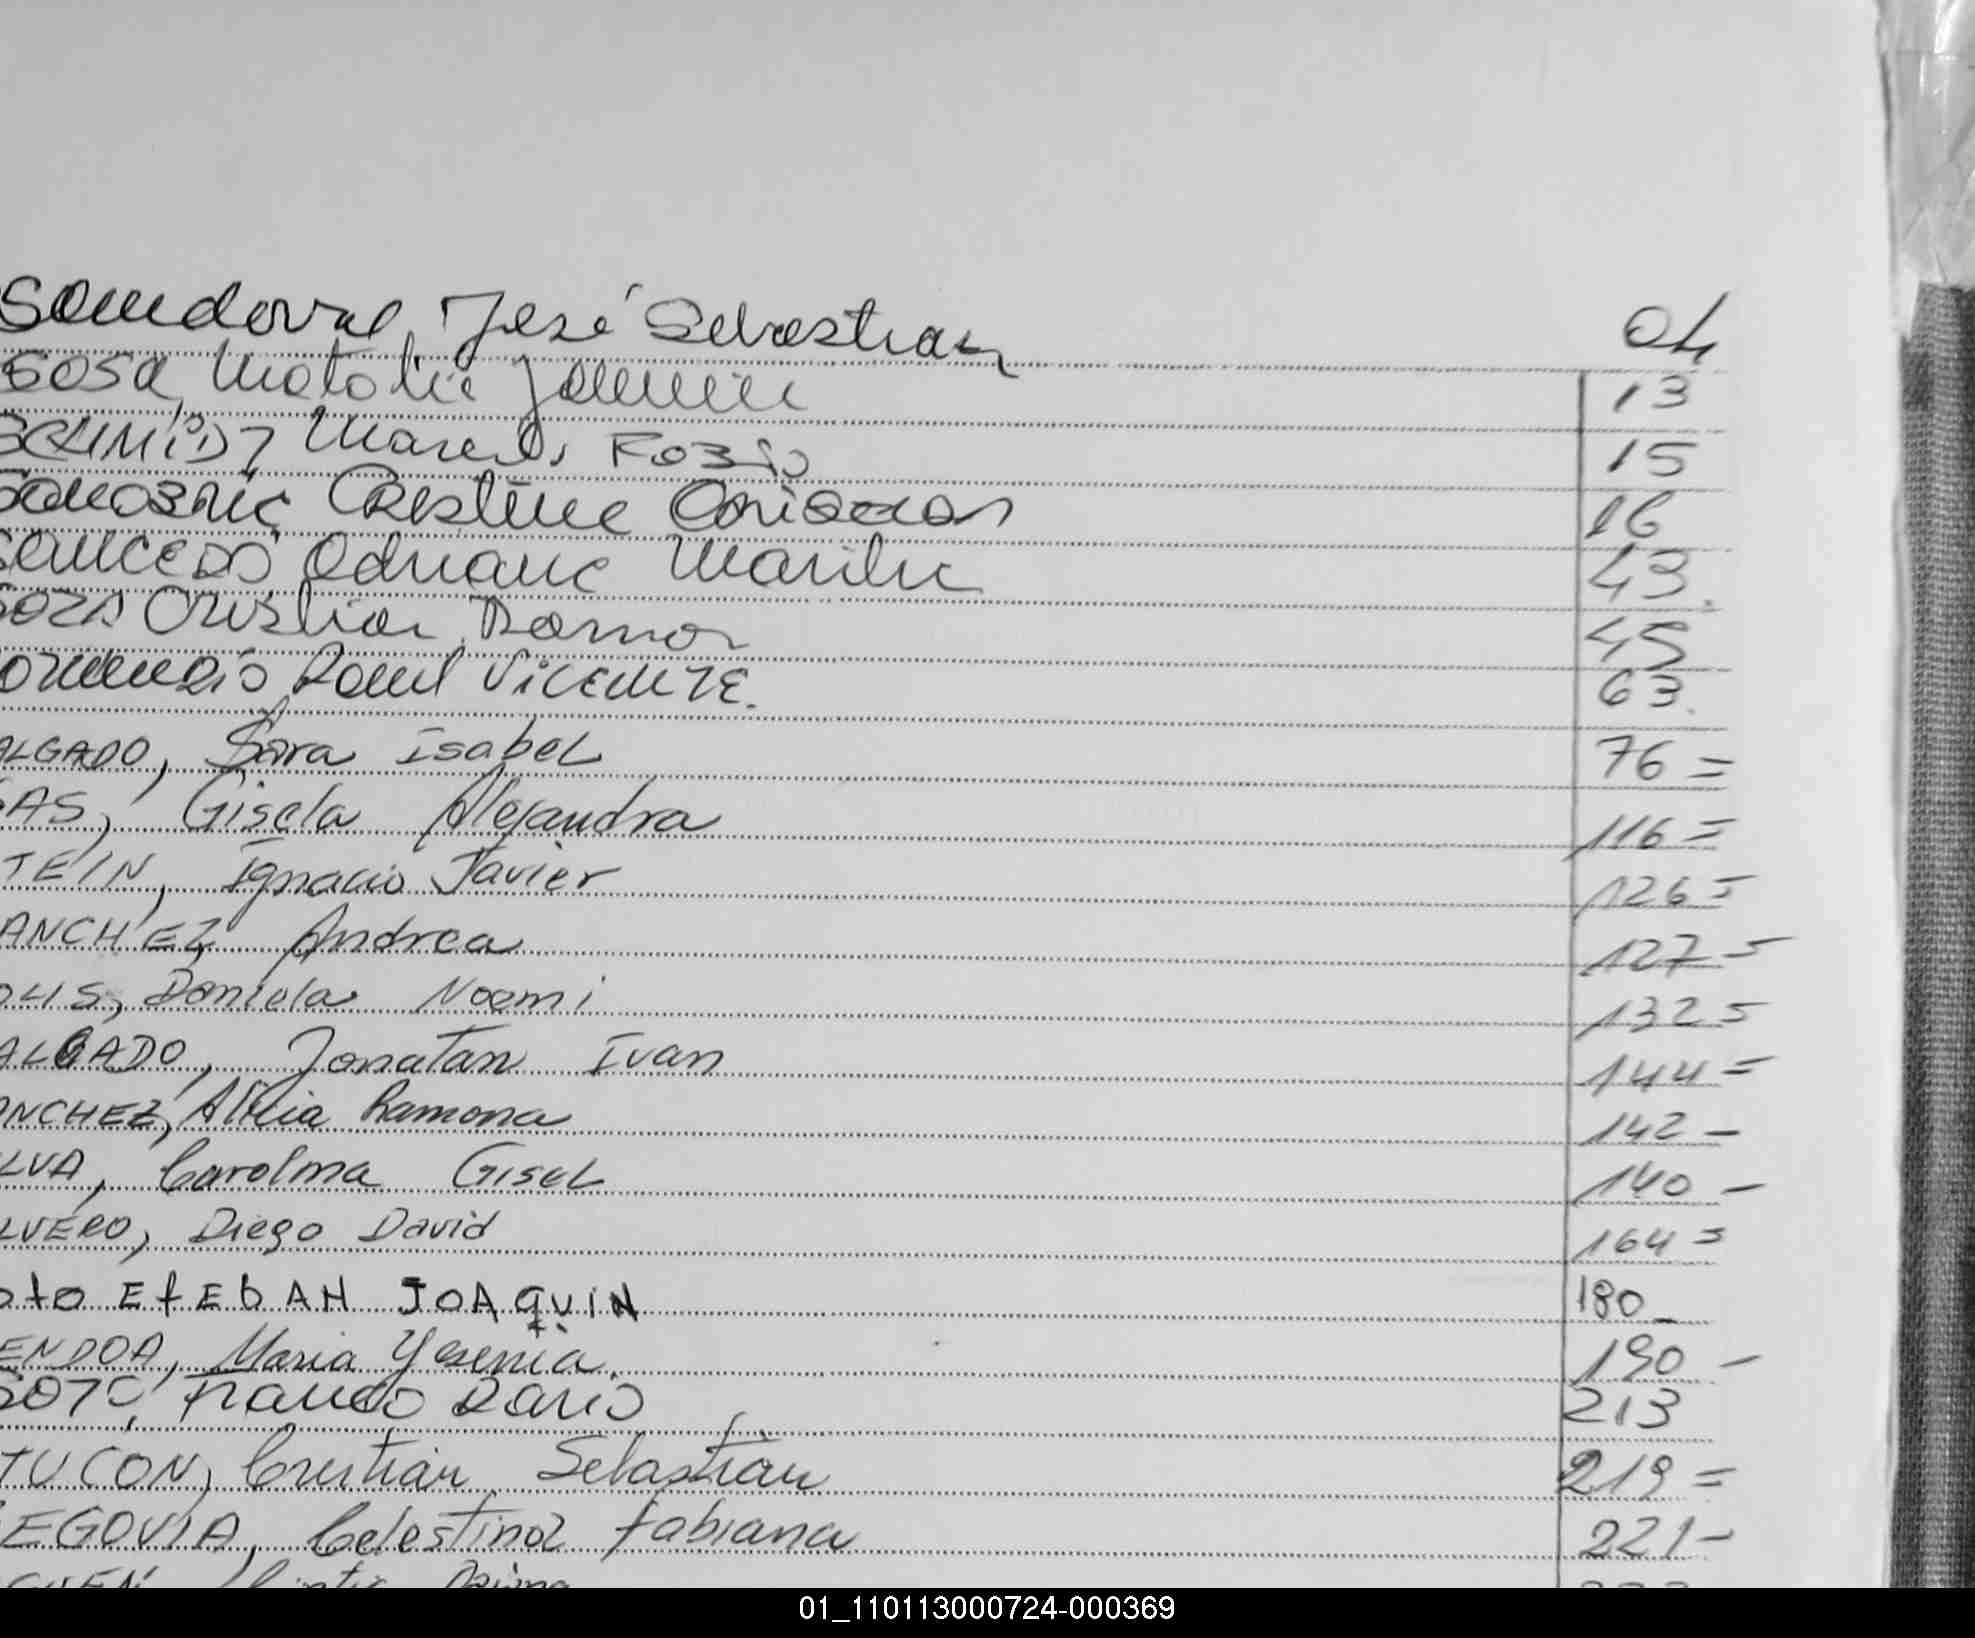 Sandoval, José Sebastian 04
Sosa, Natalia Jasmin 13
SCHMIDT Marcelo 15
Cristina 16
Adriana Marilu 43
SOZA Cristian Ramon 45
Raul VICENTE. 63.
ALGADO, Sara Isabel 76 =
GAS, Gisela Alejandra 116 =
TEIN, Ignacio Javier 126 =
ANCHEZ Andrea 127 =
OLIS, Daniela Noemi 132 =
ALGADO, Jonatan Ivan 144 =
ANCHEZ, Alicia Ramona 142 -
LVA, Carolina Gisel 140 -
LVERO, Diego David 164 =
oto EfEbAN JOAQUIN 180 -
ENDOA, Maria Yesenia 190 -
SOTO, Franco Dario 213
TUCON, Cristian Sebastian 219 =
SEGOVIA, Celestina Fabiana 221 -
01_110113000724-000369